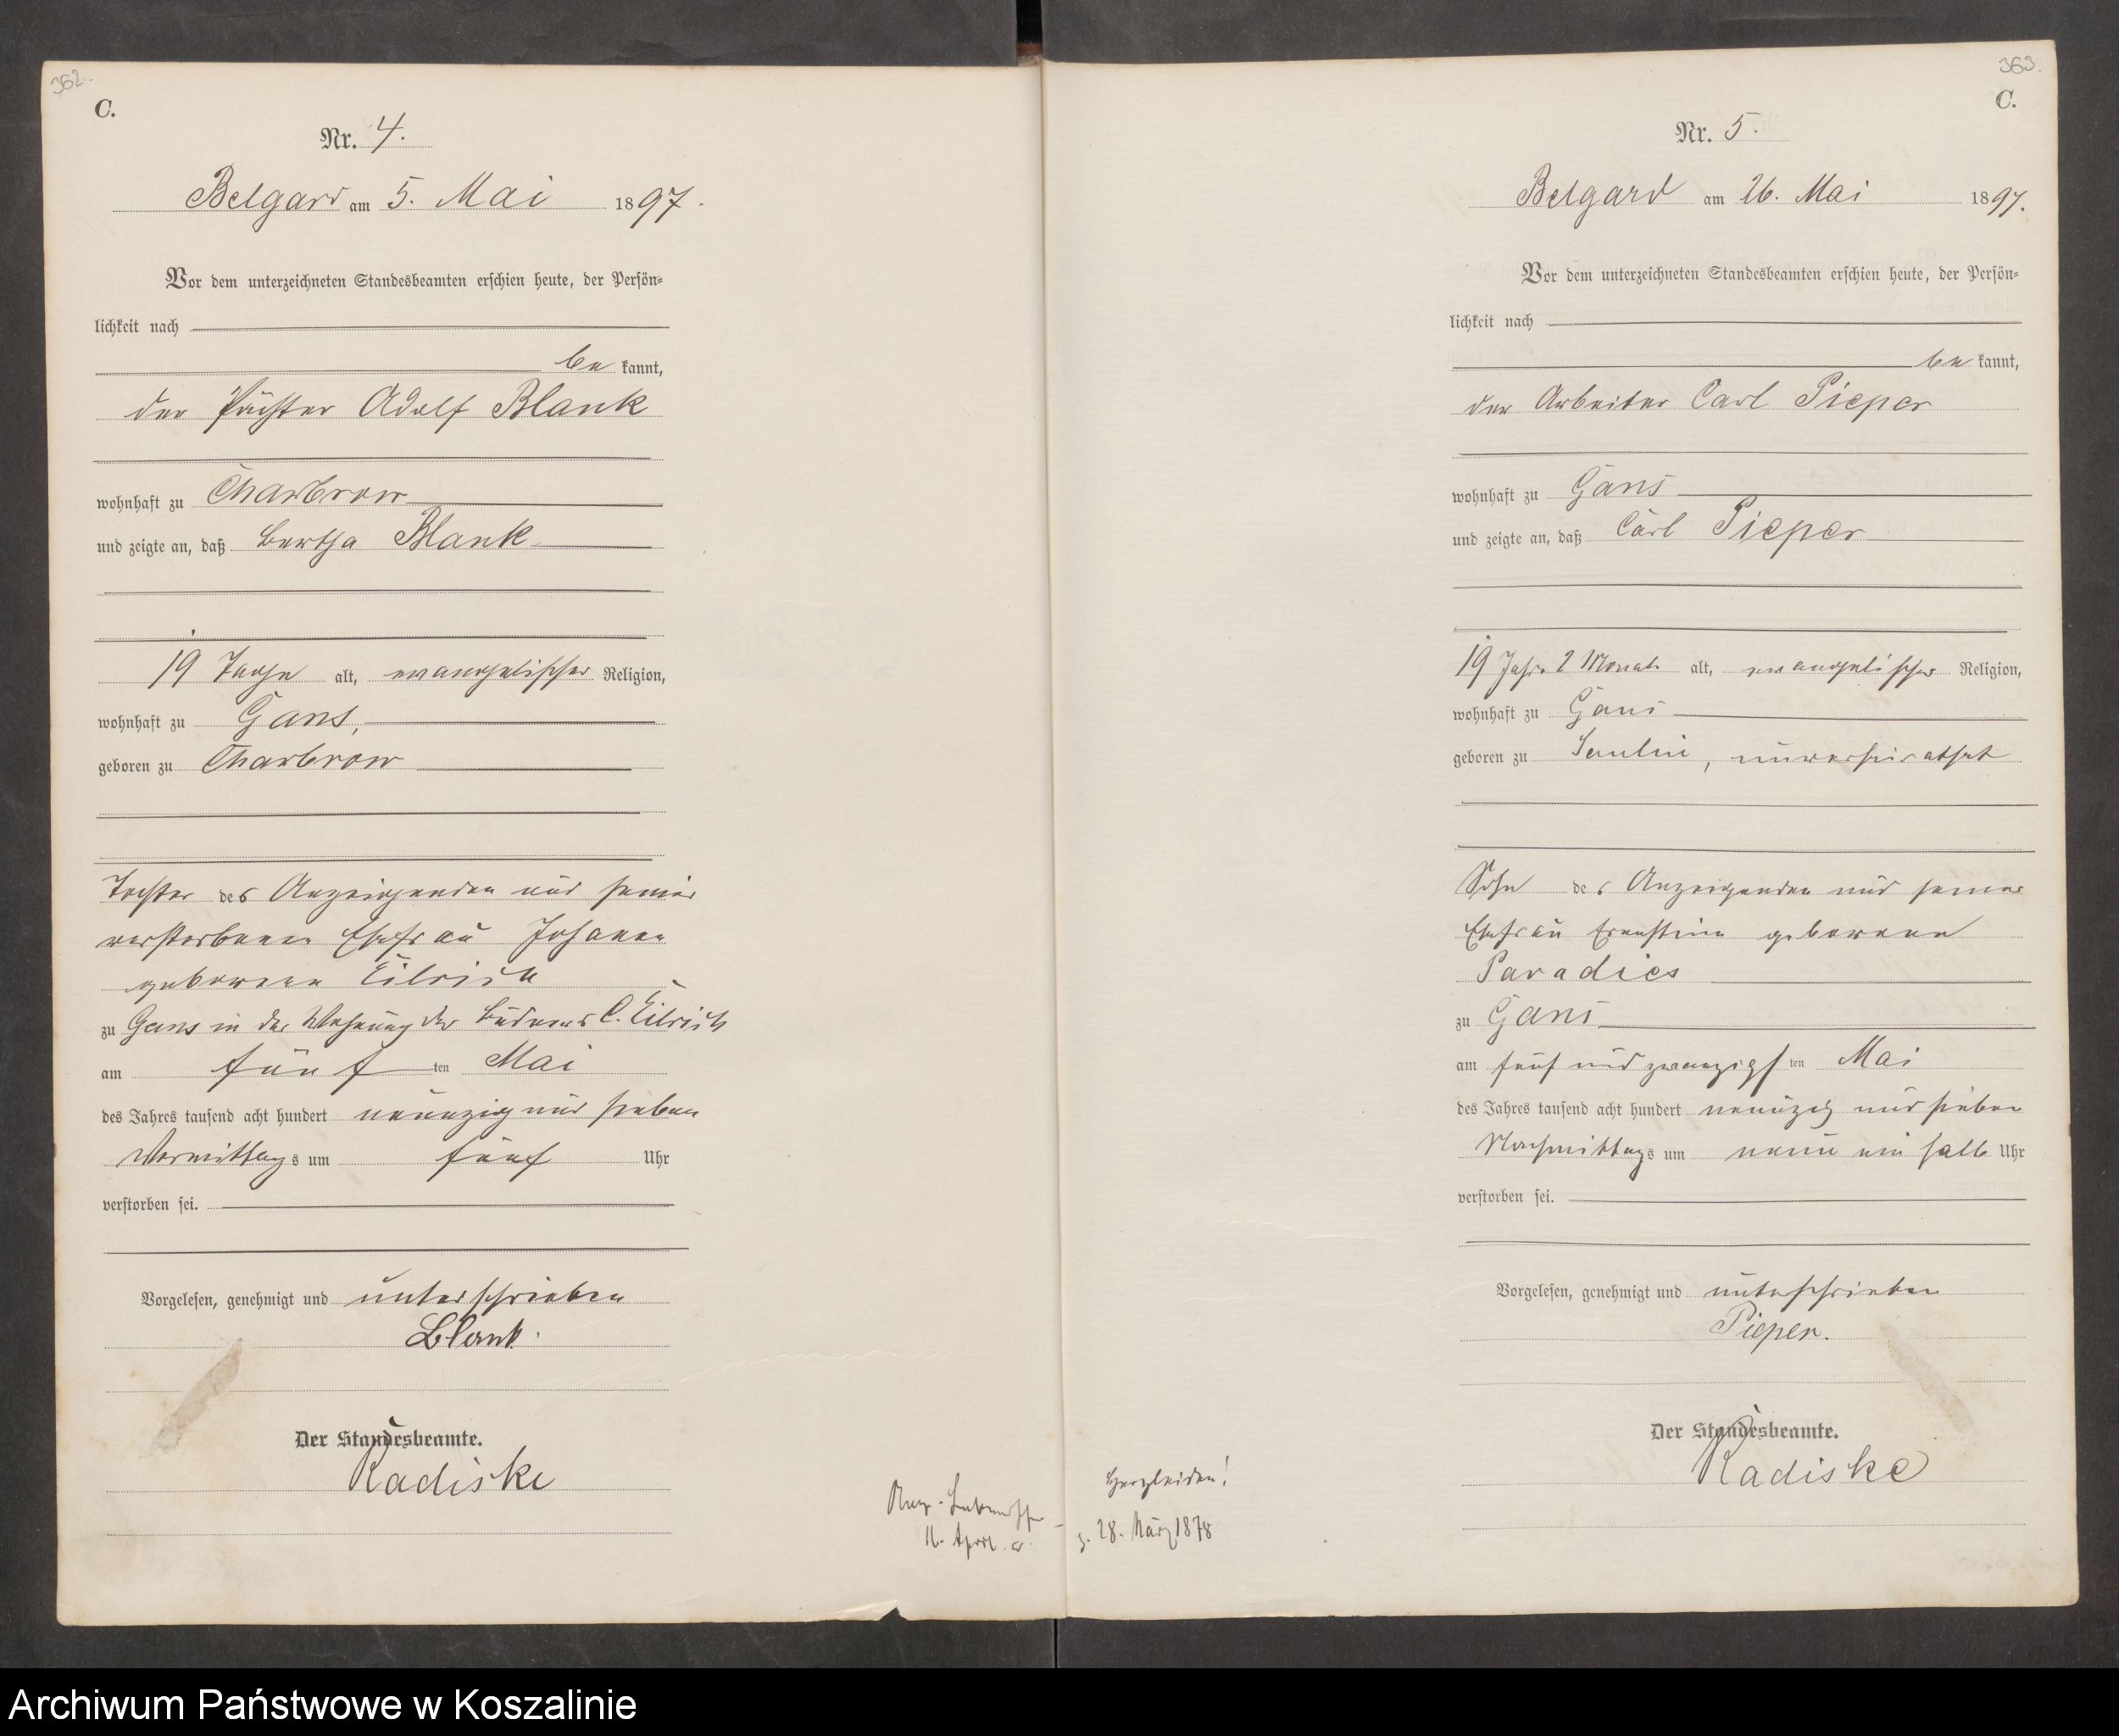 362.
C.
Nr. 4.
Belgard am 5. Mai 1897.
Vor dem unterzeichneten Standesbeamten erschien heute, der Persön-
lichkeit nach
be kannt,
der Pächter Adolf Blank
wohnhaft zu Charbrow
und zeigte an, daß Bertha Blank
19 Tage alt, evangelischer Religion,
wohnhaft zu Gans,
geboren zu Charbrow
Tochter des Anzeigenden und seiner
verstorbenen Ehefrau Johanna
geborene Eilrich
zu Gans in der Wohnung des Büdners C. Eilrich
am fünf ten Mai
des Jahres tausend acht hundert neunzig und sieben
Vormittags um fünf Uhr
verstorben sei.
Vorgelesen, genehmigt und unterschrieben
Blank.
Der Standesbeamte.
Radiske
16. April
363.
C.
Nr. 5.
Belgard am 26. Mai 1897.
Vor dem unterzeichneten Standesbeamten erschien heute, der Persön-
lichkeit nach
be kannt,
der Arbeiter Carl Pieper
wohnhaft zu Gans
und zeigte an, daß Carl Pieper
19 Jahr 2 Monat alt, evangelischer Religion,
wohnhaft zu Gans
geboren zu Saulin, unverheirathet
Sohn des Anzeigenden und seiner
Ehefrau Ernstine geborene
Paradies
zu Gans
am fünf und zwanzigsten Mai
des Jahres tausend acht hundert neunzig und sieben
Nachmittags um neun ein halb Uhr
verstorben sei.
Vorgelesen, genehmigt und unterschrieben
Pieper.
Der Standesbeamte.
Radiske
Herzleiden!
g. 28. März 1878
Archiwum Państwowe w Koszalinie